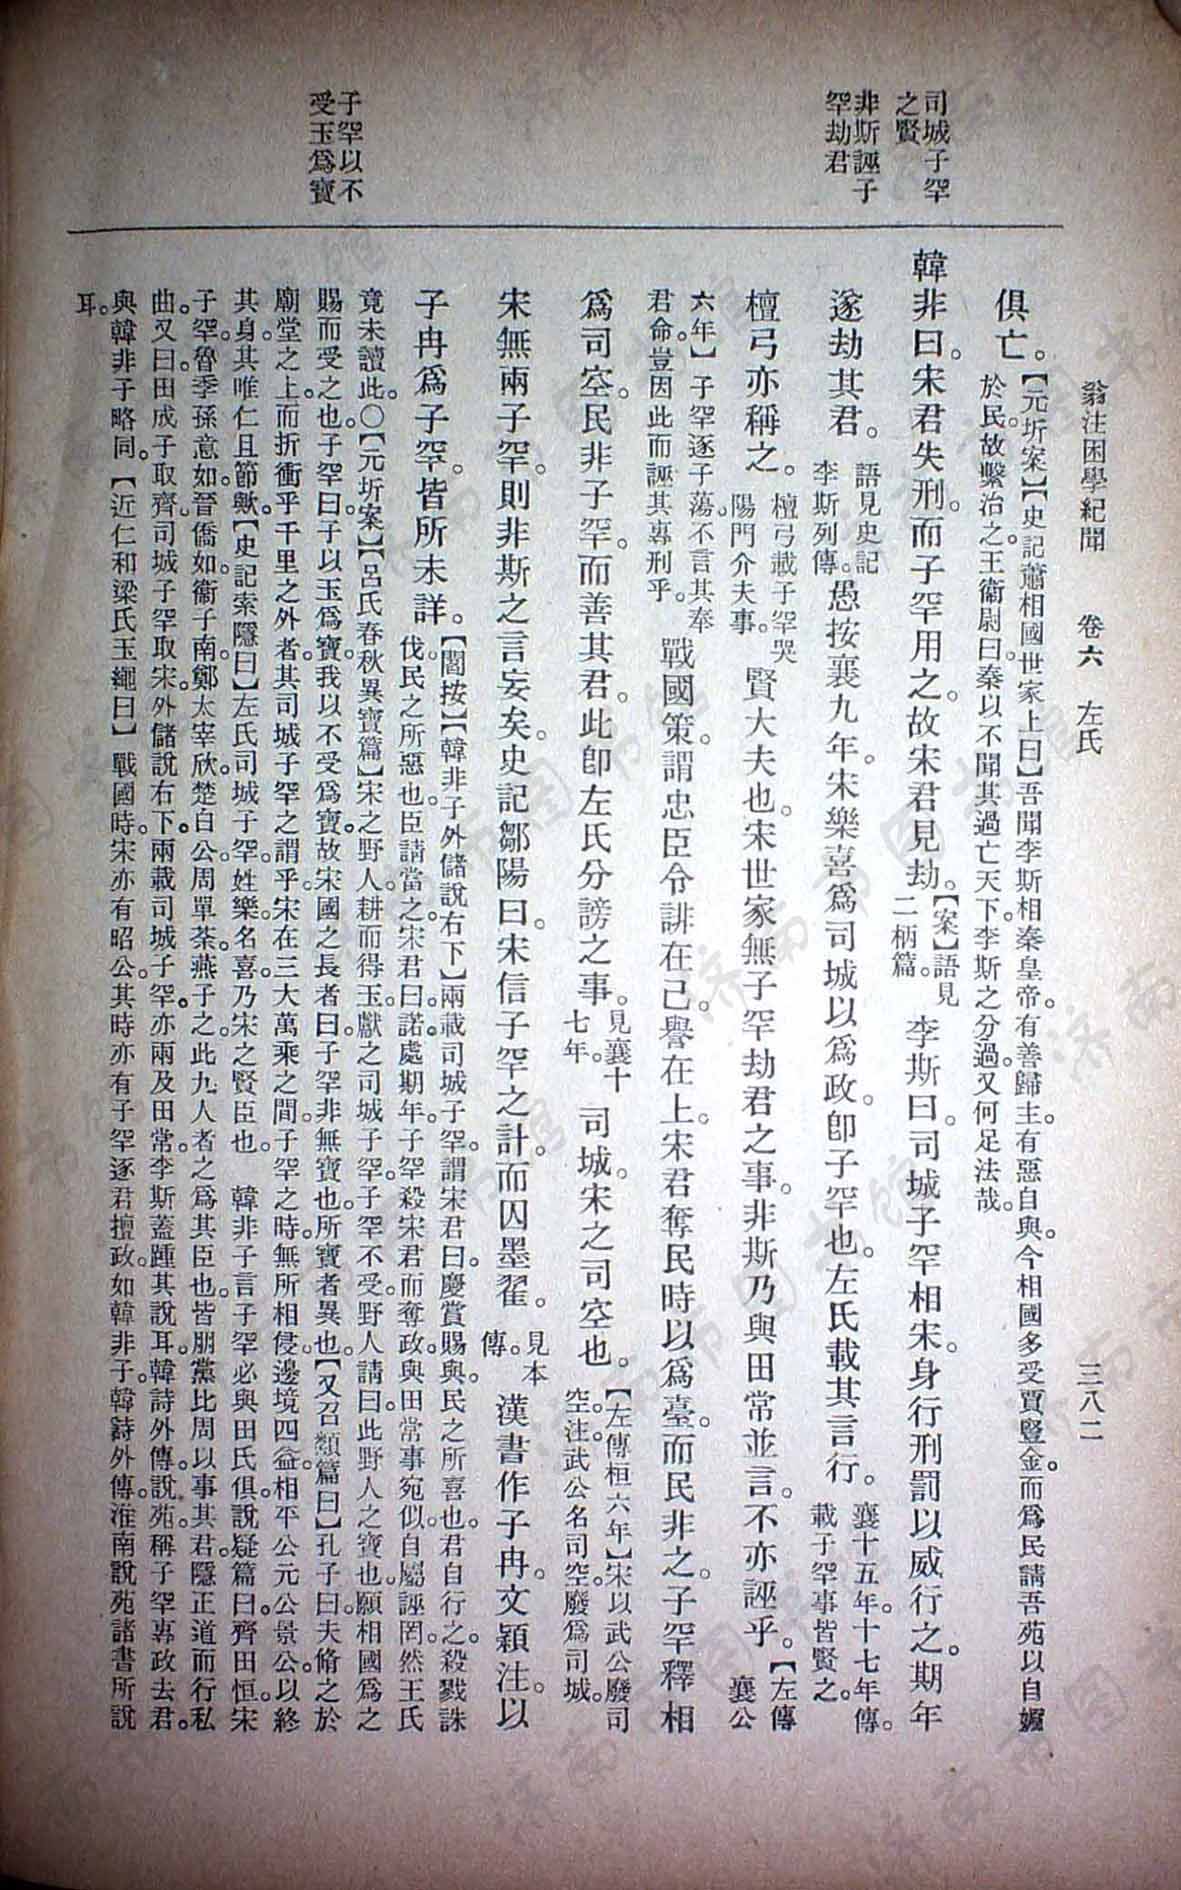 翁注困學紀聞　卷六　左氏　三八二
司城子罕
之賢
非斯誣子
罕劫君
子罕以不
受玉爲寶
俱亡。【元圻案】【史記蕭相國世家上曰】吾聞李斯相秦皇帝。有善歸主。有惡自與。今相國多受賈豎金。而爲民請吾苑以自媚
於民。故繫治之。王衞尉曰。秦以不聞其過亡天下。李斯之分過。又何足法哉。
韓非曰。宋君失刑。而子罕用之。故宋君見劫。【案】語見二柄篇。李斯曰。司城子罕相宋。身行刑罰以威行之。期年
遂劫其君。語見史記李斯列傳。愚按襄九年。宋樂喜爲司城以爲政。卽子罕也。左氏載其言行。襄十五年。十七年傳。載子罕事皆賢之。
檀弓亦稱之。檀弓載子罕哭陽門介夫事。賢大夫也。宋世家無子罕劫君之事。非斯乃與田常並言。不亦誣乎。【左傳襄公
六年】子罕逐子蕩。不言其奉君命。豈因此而誣其專刑乎。戰國策。謂忠臣令誹在己。譽在上。宋君奪民時以爲臺。而民非之。子罕釋相
爲司空。民非子罕。而善其君。此卽左氏分謗之事。見襄十七年。司城。宋之司空也。【左傳桓六年】宋以武公廢司空。注武公名司空。廢爲司城。
宋無兩子罕。則非斯之言妄矣。史記鄒陽曰。宋信子罕之計。而囚墨翟。見本傳。漢書作子冉。文穎注。以
子冉爲子罕。皆所未詳。【閻按】【韓非子外儲說右下】兩載司城子罕。謂宋君曰。慶賞賜與。民之所喜也。君自行之。殺戮誅
伐。民之所惡也。臣請當之。宋君曰。諾。處期年。子罕殺宋君而奪政。與田常事宛似。自屬誣罔。然王氏
竟未讀此。〇【元圻案】【呂氏春秋異寶篇】宋之野人。耕而得玉。獻之司城子罕。子罕不受。野人請曰。此野人之寶也。願相國爲之
賜而受之也。子罕曰。子以玉爲寶。我以不受爲寶。故宋國之長者曰。子罕非無寶也。所寶者異也。【又召類篇曰】孔子曰。夫脩之於
廟堂之上。而折衝乎千里之外者。其司城子罕之謂乎。宋在三大萬乘之間。子罕之時。無所相侵。邊境四益。相平公元公景公。以終
其身。其唯仁且節歟。【史記索隱曰】左氏司城子罕。姓樂。名喜。乃宋之賢臣也。　韓非子言子罕必與田氏俱。說疑篇曰。齊田恒。宋
子罕。魯季孫意如。晉僑如。衞子南。鄭太宰欣。楚白公。周單荼。燕子之。此九人者之爲其臣也。皆朋黨比周以事其君。隱正道而行私
曲。又曰。田成子取齊。司城子罕取宋。外儲說右下。兩載司城子罕。亦兩及田常。李斯蓋踵其說耳。韓詩外傳。說苑。稱子罕專政去君。
與韓非子略同。【近仁和梁氏玉繩曰】戰國時。宋亦有昭公。其時亦有子罕逐君擅政。如韓非子。韓詩外傳。淮南說苑諸書所說
耳。